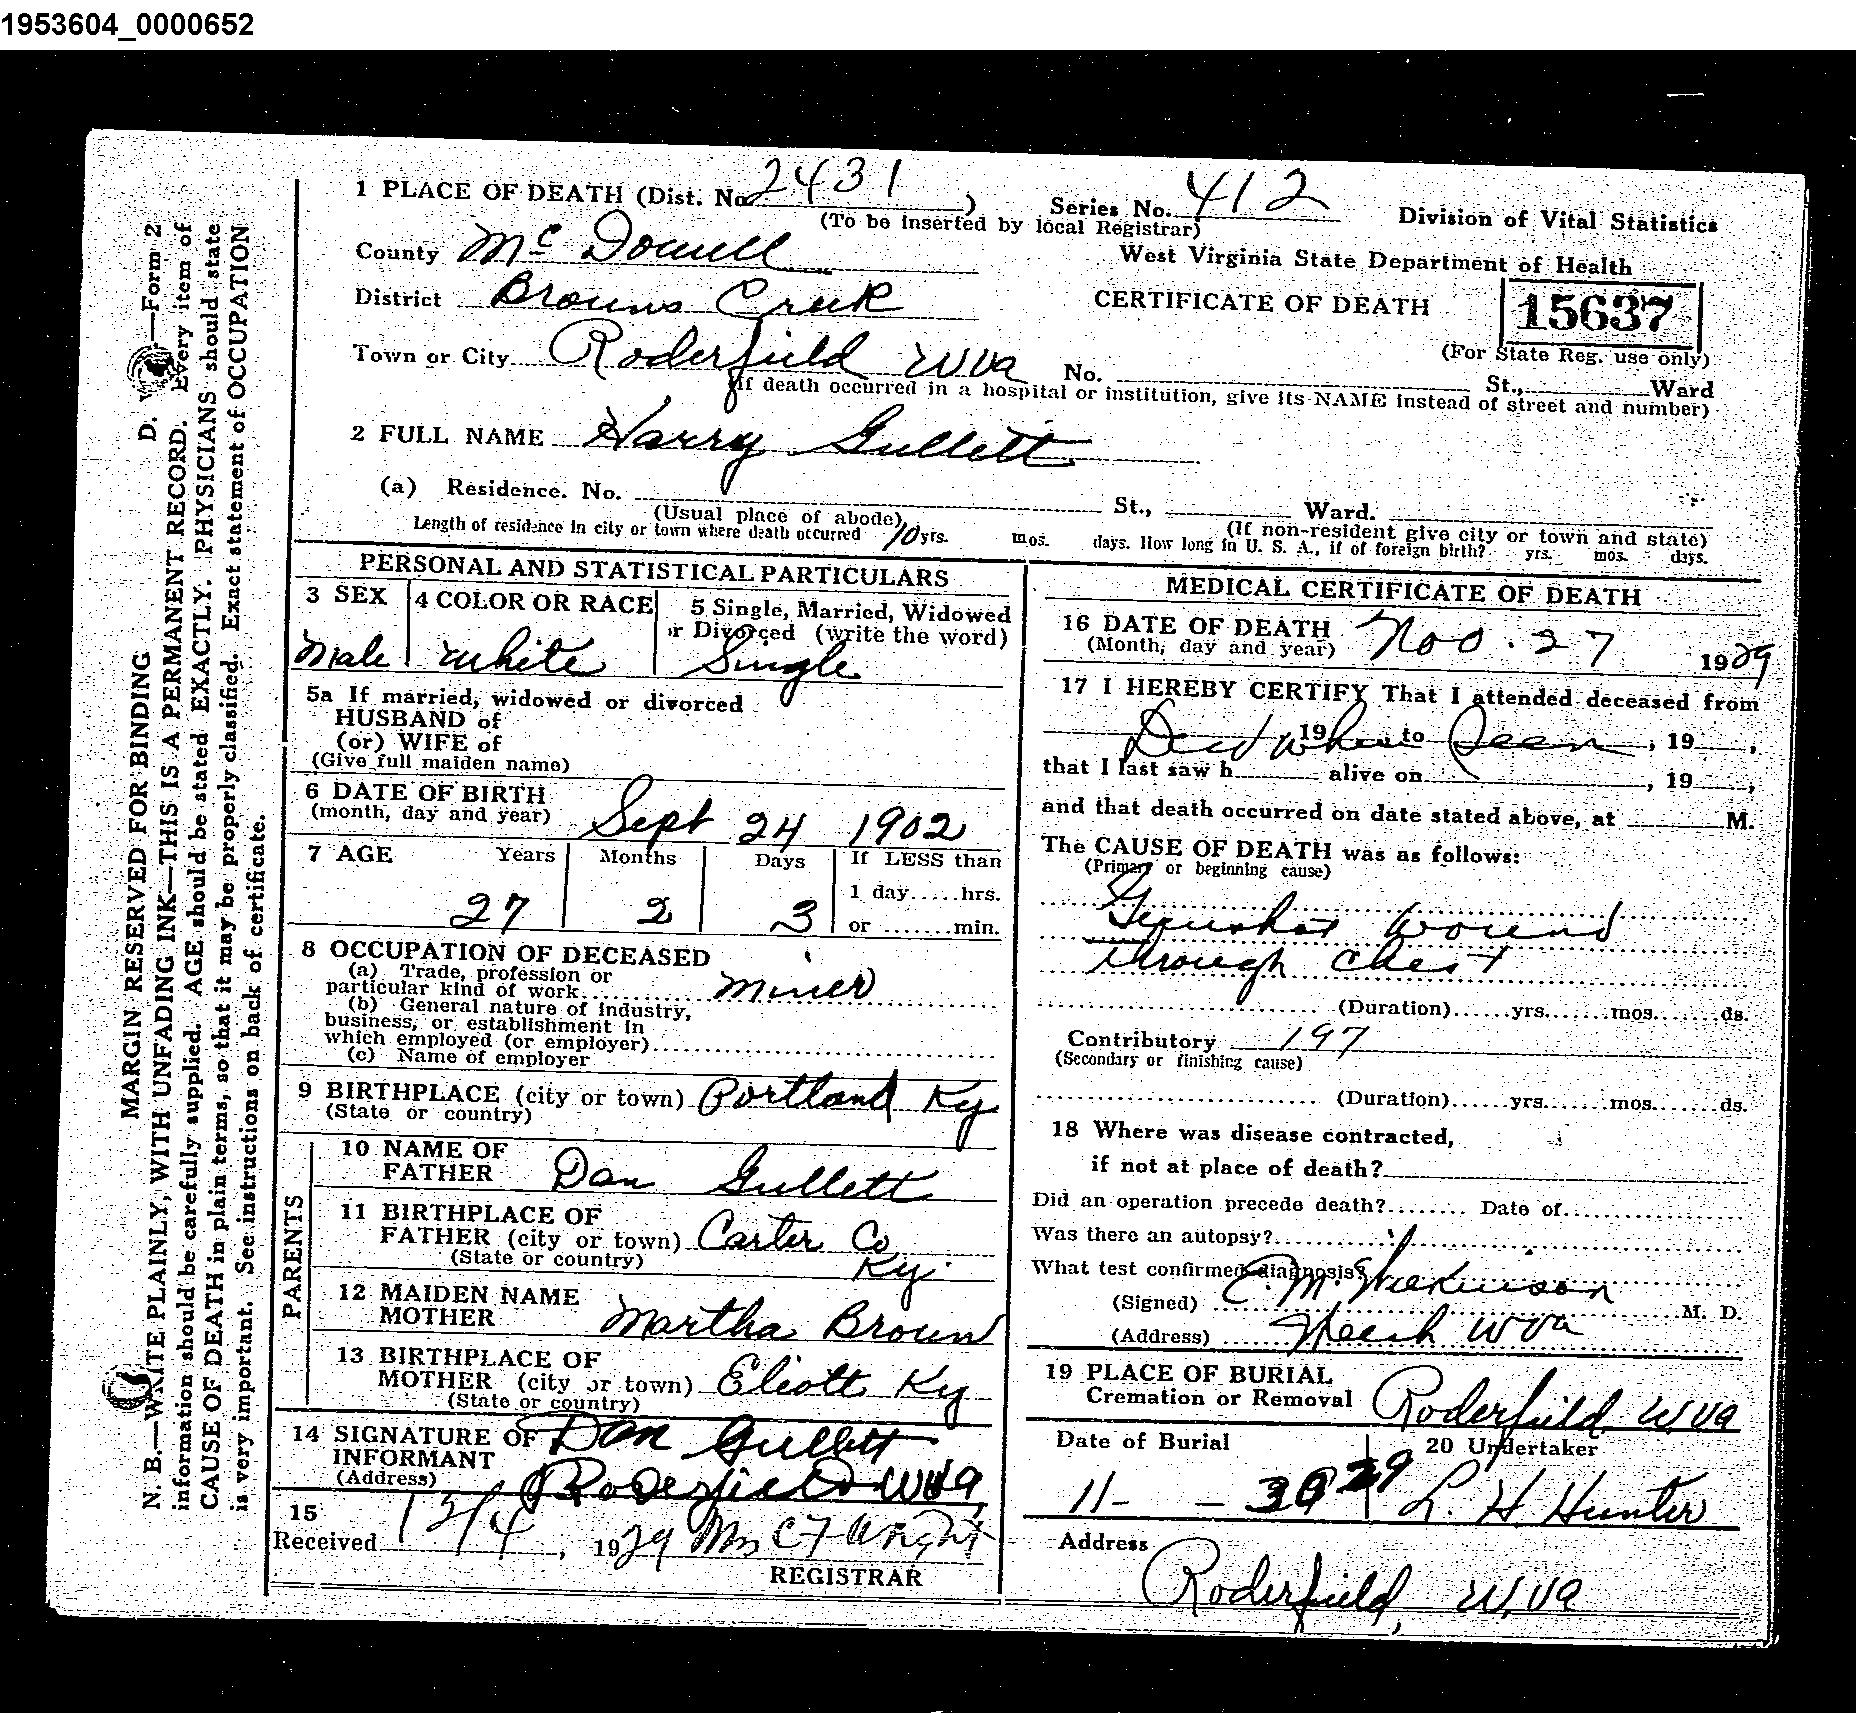 1953604_0000652
1 PLACE OF DEATH (Dist. No. 2431 )
Series No. 412
Division of Vital Statistics
(To be inserted by local Registrar)
County Mc Dowell
West Virginia State Department of Health
District Browns Creek
CERTIFICATE OF DEATH
15637
(For State Reg. use only)
Town or City Roderfield W Va No. St., Ward
If death occurred in a hospital or institution, give its NAME instead of street and number)
2 FULL NAME Harry Gullett
(a) Residence. No. St., Ward.
(Usual place of abode) (If non-resident give city or town and state)
Length of residence in city or town where death occurred 10 yrs. mos. days. How long in U. S. A., if of foreign birth? yrs. mos. days.
PERSONAL AND STATISTICAL PARTICULARS
3 SEX 4 COLOR OR RACE 5 Single, Married, Widowed
or Divorced (write the word)
Male White Single
5a If married, widowed or divorced
HUSBAND of
(or) WIFE of
(Give full maiden name)
6 DATE OF BIRTH
(month, day and year) Sept 24 1902
7 AGE Years Months Days If LESS than
1 day.....hrs.
27 2 3 or .......min.
8 OCCUPATION OF DECEASED
(a) Trade, profession or
particular kind of work Miner
(b) General nature of industry,
business, or establishment in
which employed (or employer)
(c) Name of employer
9 BIRTHPLACE (city or town) Portland Ky
(State or country)
PARENTS
10 NAME OF
FATHER Dan Gullett
11 BIRTHPLACE OF
FATHER (city or town) Carter Co
(State or country) Ky.
12 MAIDEN NAME
MOTHER Martha Brown
13 BIRTHPLACE OF
MOTHER (city or town) Eliott Ky
(State or country)
14 SIGNATURE OF Dan Gullett
INFORMANT
(Address) Roderfield W Va
15
Received 12/4, 1929 Mrs C F Wright
REGISTRAR
MEDICAL CERTIFICATE OF DEATH
16 DATE OF DEATH
(Month, day and year) Nov. 27 1929
17 I HEREBY CERTIFY That I attended deceased from
Dead when Seen 19 to , 19 ,
that I last saw h alive on , 19 ,
and that death occurred on date stated above, at M.
The CAUSE OF DEATH was as follows:
(Primary or beginning cause)
Gunshot wound
through chest
(Duration)......yrs.......mos.......ds.
Contributory 197
(Secondary or finishing cause)
(Duration)......yrs.......mos.......ds.
18 Where was disease contracted,
if not at place of death?
Did an operation precede death? Date of
Was there an autopsy?
What test confirmed diagnosis?
(Signed) E. M. Wilkinson M. D.
(Address) W Va
19 PLACE OF BURIAL
Cremation or Removal Roderfield W Va
Date of Burial 20 Undertaker
11- - 30 29 L. H. Hunter
Address
Roderfield, W. Va
MARGIN RESERVED FOR BINDING
D. —Form 2
N. B.—WRITE PLAINLY, WITH UNFADING INK—THIS IS A PERMANENT RECORD. Every item of
information should be carefully supplied. AGE should be stated EXACTLY. PHYSICIANS should state
CAUSE OF DEATH in plain terms, so that it may be properly classified. Exact statement of OCCUPATION
is very important. See instructions on back of certificate.